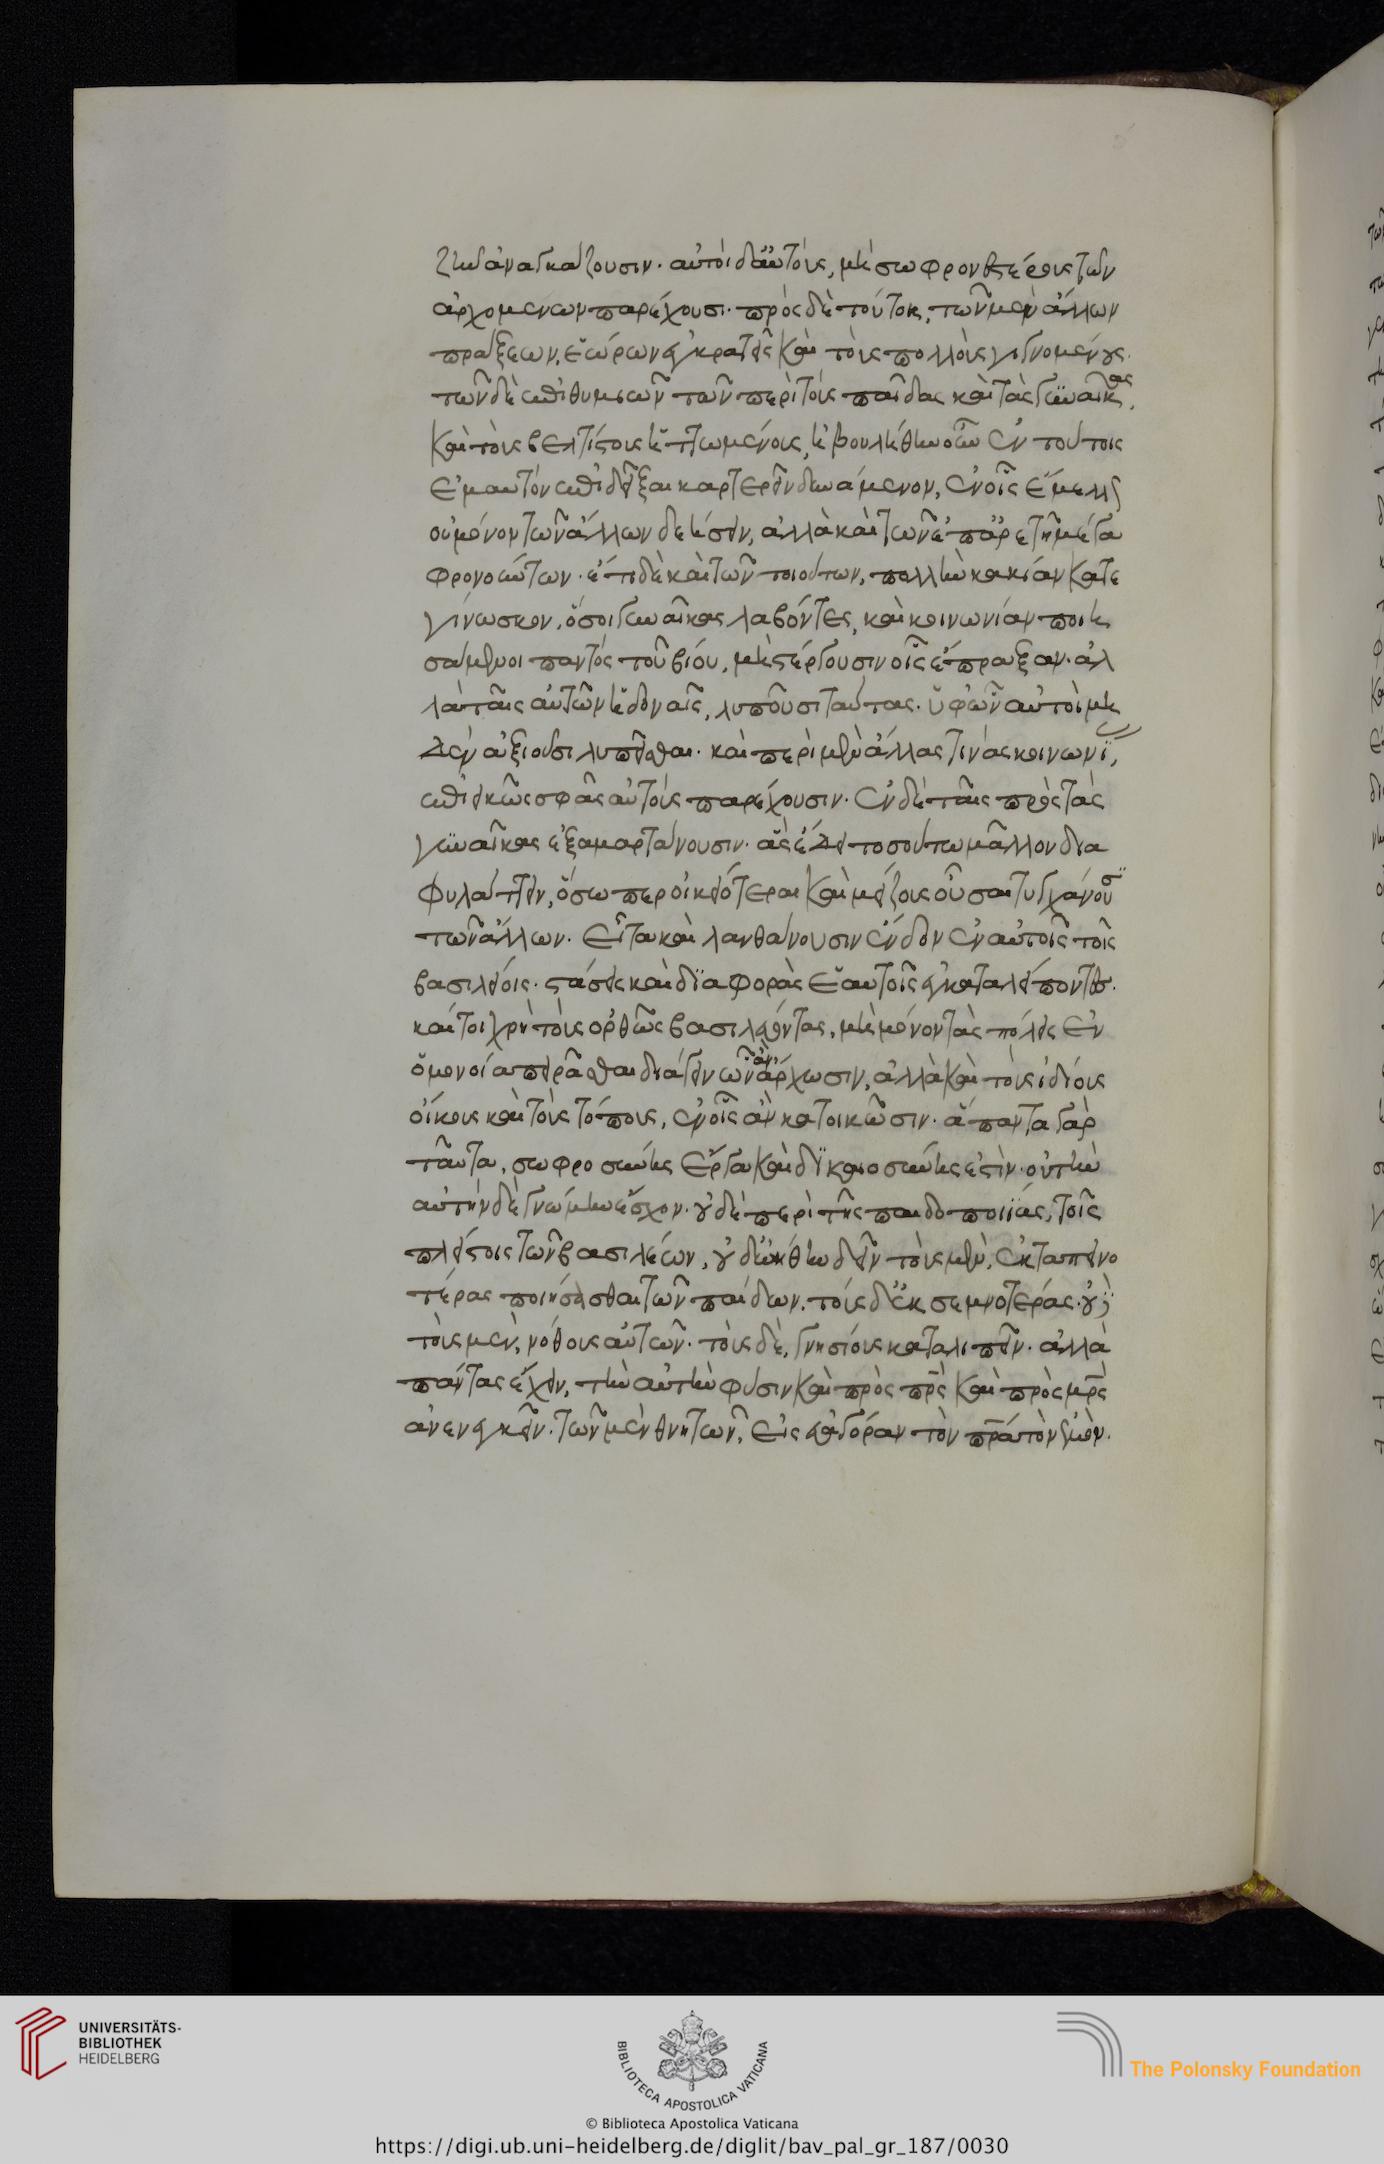 ζῆν ἀναγκάζουσιν· αὐτοὶ δ᾽ αὑτοὺς, μὴ σωφρονεστέρους τῶν
ἀρχομένων παρέχουσι· πρὸς δὲ τούτοις, τῶν μὲν ἄλλων
πράξεων, ἑώρων ἐγκρατεῖς καὶ τοὺς πολλοὺς γιγνομένους·
τῶν δὲ ἐπιθυμιῶν τῶν περὶ τοὺς παῖδας καὶ τὰς γυναῖκας,
καὶ τοὺς βελτίστους ἡττωμένους, ἠβουλήθην οὖν ἐν τούτοις
ἐμαυτὸν ἐπιδεῖξαι καρτερεῖν δυνάμενον, ἐν οἷς ἔμελλον
οὐ μόνον τῶν ἄλλων διοίσειν, ἀλλὰ καὶ τῶν ἐπ᾽ ἀρετῇ μέγα
φρονούντων· ἔτι δὲ καὶ τῶν τοιούτων, πολλὴν κακίαν κατε
γίνωσκον, ὅσοι γυναῖκας λαβόντες, καὶ κοινωνίαν ποιη
σάμενοι παντὸς τοῦ βίου, μὴ στέργουσιν οἷς ἔπραξαν· ἀλ
λὰ ταῖς αὑτῶν ἡδοναῖς, λυποῦσι ταύτας· ὑφ᾽ ὧν αὐτοὶ μη
δὲν ἀξιοῦσι λυπεῖσθαι· καὶ περὶ μὲν ἄλλας τινὰς κοινωνί,
ἐπιεικῶς σφᾶς αὐτοὺς παρέχουσιν· ἐν δὲ ταῖς πρὸς τὰς
γυναῖκας ἐξαμαρτάνουσιν· ἃς ἔδει τοσούτω μᾶλλον δια
φυλάττειν, ὅσω περ οἰκειότεραι καὶ μείζους οὖσαι τυγχάνουσι
τῶν ἄλλων· εἶτα καὶ λανθάνουσιν ἔνδον ἐν αὐτοῖς τοῖς
βασιλείοις· στάσεις καὶ διαφορὰς ἑαυτοῖς ἐγκαταλείποντες·
καίτοι χρὴ τοὺς ὀρθῶς βασιλεύοντας, μὴ μόνον τὰς πόλεις ἐν
ὁμονοία πειρᾶσθαι διάγειν ὧν ἂν ἄρχωσιν, ἀλλὰ καὶ τοὺς ἰδίους
οἴκους καὶ τοὺς τόπους, ἐν οἷς ἂν κατοικῶσιν· ἅπαντα γὰρ
ταῦτα, σωφροσύνης ἔργα καὶ δικαιοσύνης ἐστίν· οὐ τὴν
αὐτὴν δὲ γνώμην ἔσχον· οὐδὲ περὶ τῆς παιδοποιίας, τοῖς
πλείστοις τῶν βασιλέων, οὐδ᾽ ὠήθην δεῖν τοὺς μὲν, ἐκ ταπεινο
τέρας ποιήσασθαι τῶν παίδων. τοὺς δ᾽ ἐκ σεμνοτέρας· οὐδὲ
τοὺς μὲν, νόθους αὐτῶν· τοὺς δὲ, γνησίους καταλιπεῖν· ἀλλὰ
πάντας ἔχειν, τὴν αὐτὴν φύσιν καὶ πρὸς πρς καὶ πρὸς μρς
ἀνενεγκεῖν· τῶν μὲν θνητῶν, εἰς εὐαγόραν τὸν πρα τὸν ἐμόν.
UNIVERSITÄTS-
BIBLIOTHEK
HEIDELBERG
BIBLIOTECA APOSTOLICA VATICANA
The Polonsky Foundation
© Biblioteca Apostolica Vaticana
https://digi.ub.uni-heidelberg.de/diglit/bav_pal_gr_187/0030